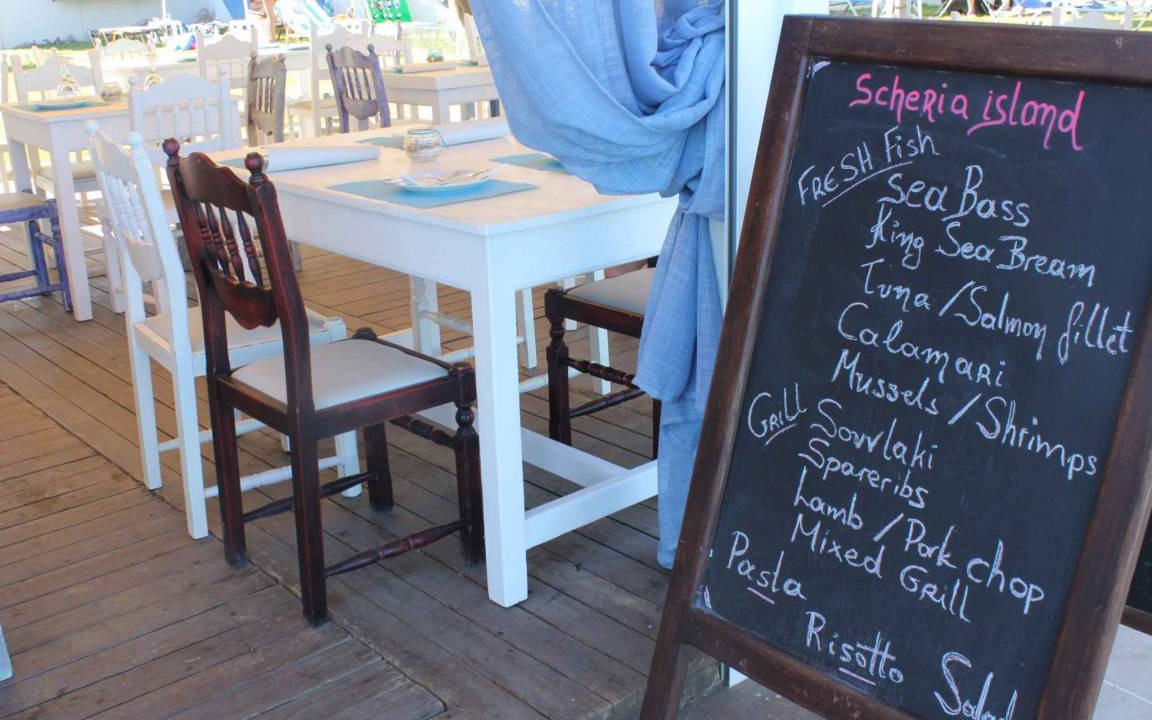 Scheria island
FRESH Fish
Sea Bass
King Sea Bream
Tuna / Salmon fillet
Calamari
Mussels / Shrimps
Grill Souvlaki
Spareribs
Lamb / Pork chop
Mixed Grill
Pasta
Risotto
Salad